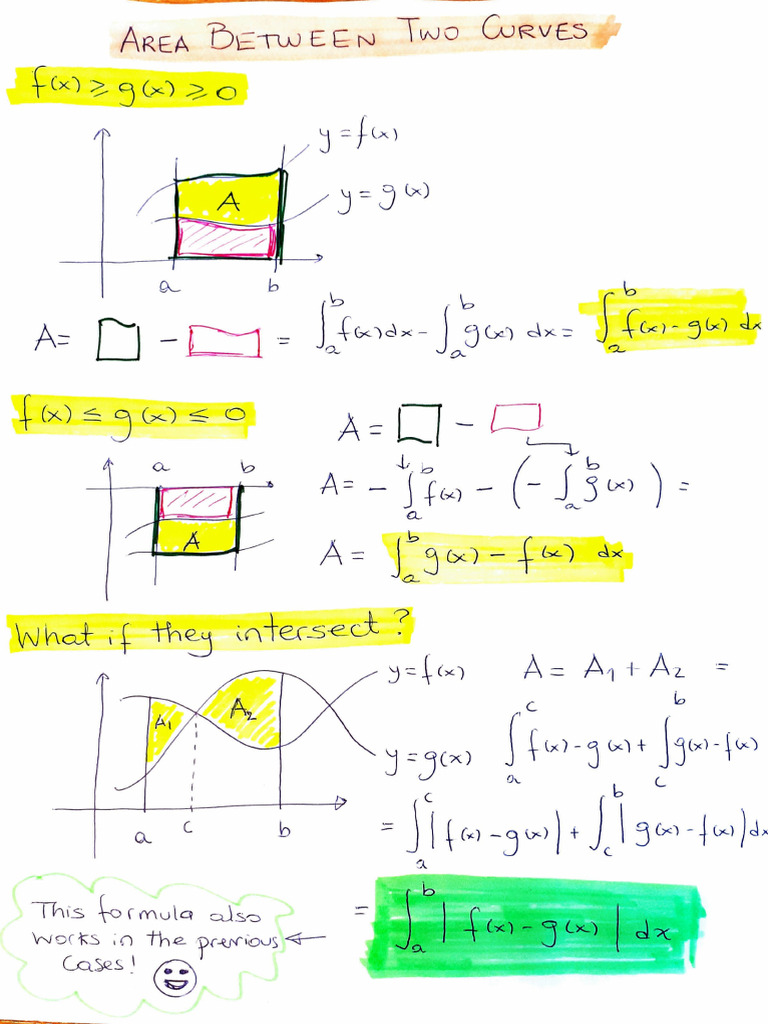 AREA BETWEEN TWO CURVES
f(x) ⩾ g(x) ⩾ 0
y = f(x)
A
y = g(x)
a b
A = □ − □ = ∫_a^b f(x)dx − ∫_a^b g(x) dx = ∫_a^b f(x) − g(x) dx
f(x) ≤ g(x) ≤ 0
A = □ − □
a b
A = − ∫_a^b f(x) − (− ∫_a^b g(x) ) =
A
A = ∫_a^b g(x) − f(x) dx
What if they intersect?
y = f(x)
A = A1 + A2 =
A1 A2
y = g(x)
∫_a^c f(x) − g(x) + ∫_c^b g(x) − f(x)
a c b
= ∫_a^c |f(x) − g(x)| + ∫_c^b |g(x) − f(x)| dx
This formula also
works in the previous
cases!
= ∫_a^b | f(x) − g(x) | dx